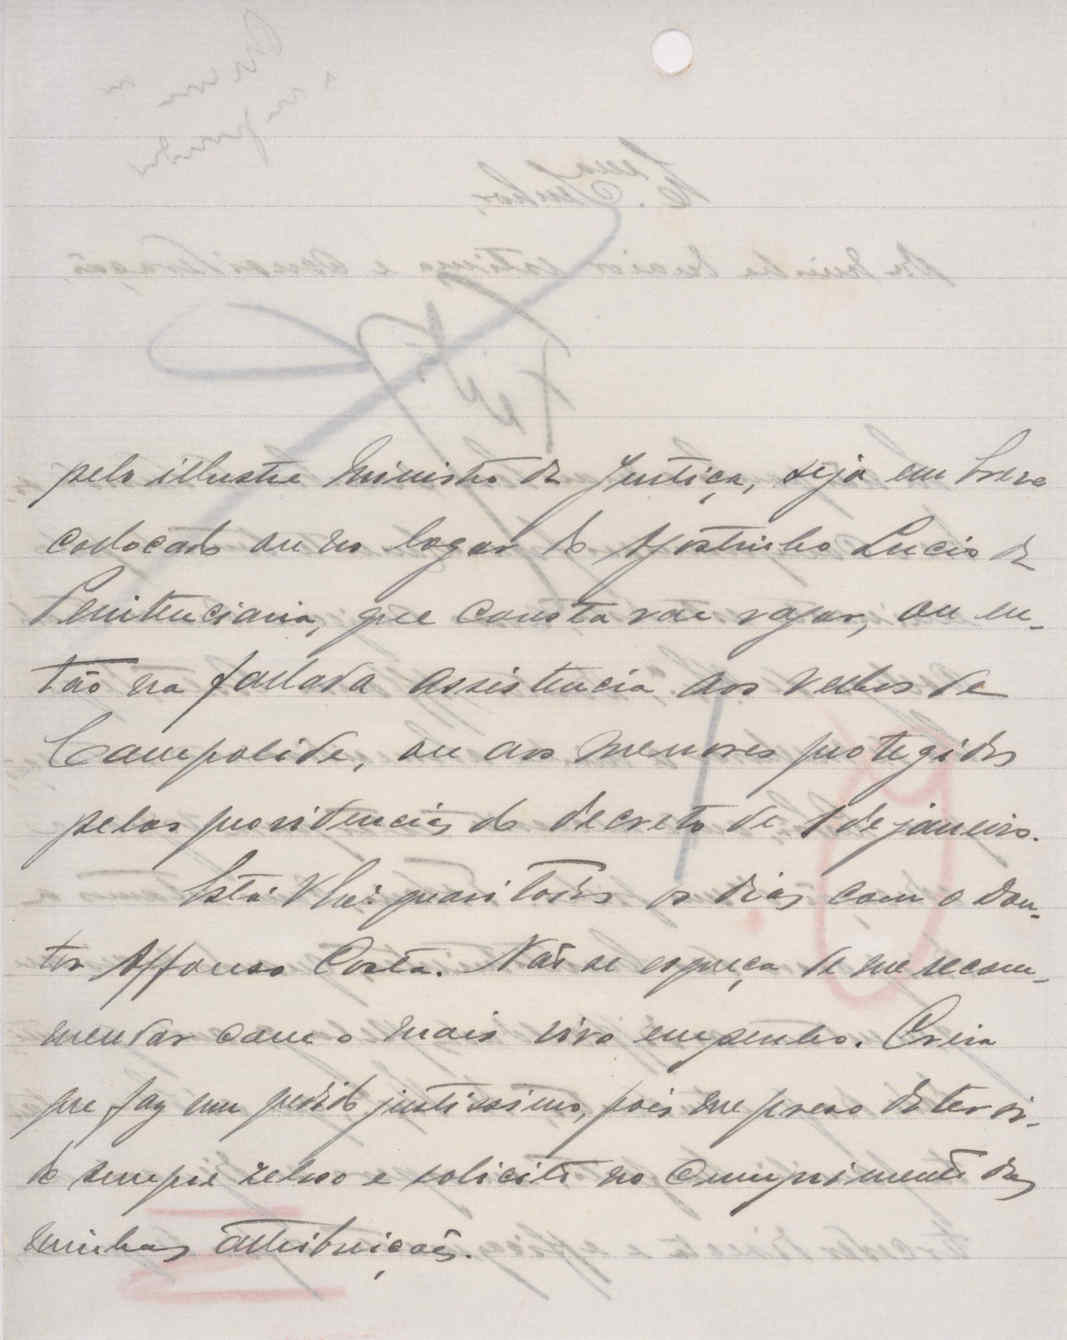 pelo illustre Ministro da Justiça, seja em breve
collocado ou no logar do Agostinho Lucio da
Penitenciaria, que consta vae vagar, ou en-
tão na fallada assistencia aos velhos de
Campolide, ou aos menores protegidos
pelas providencias do decreto de 1 de janeiro.
Está V. quasi todos os dias com o Dou-
tor Affonso Costa. Não se esqueça de me recom-
mendar com o mais vivo empenho. Creia
que faz um pedido justissimo, pois me preso de ter si-
do sempre zeloso e solicito no cumprimento das
minhas attribuições.